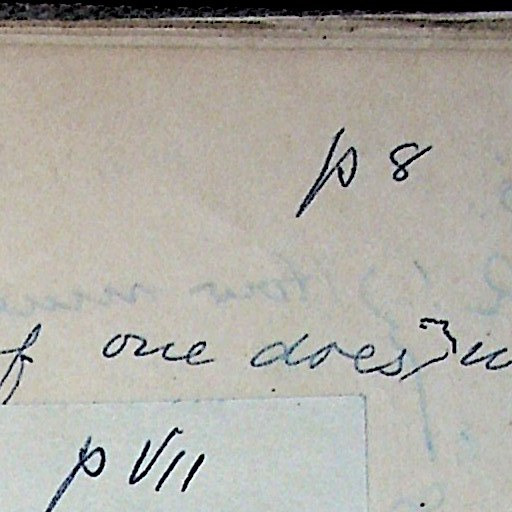 p 8
f one does
p VII